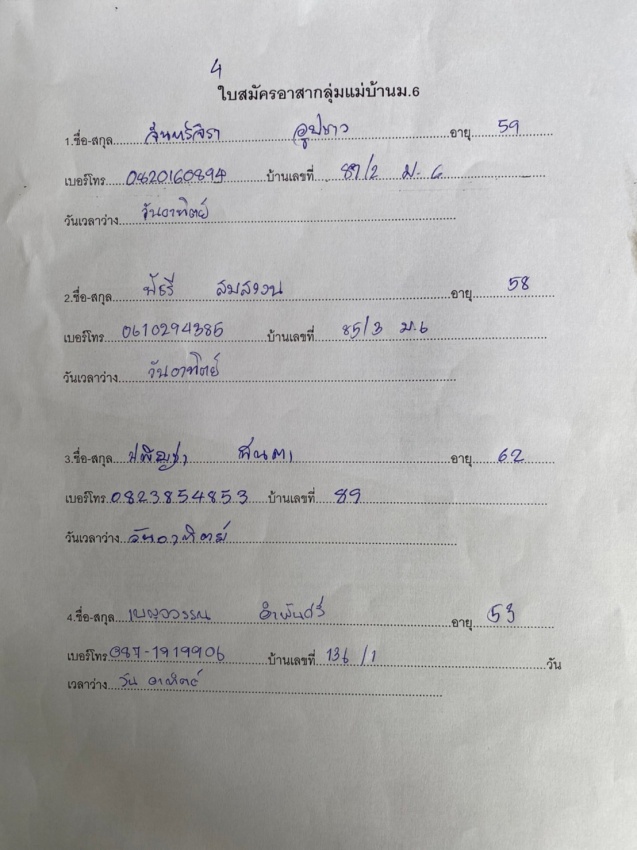 4
ใบสมัครอาสากลุ่มแม่บ้านม.6
1.ชื่อ-สกุล จันทร์จิรา อายุ 59
เบอร์โทร 0820160894 บ้านเลขที่ 87/2 ม. 6
วันเวลาว่าง วันอาทิตย์
2.ชื่อ-สกุล พัชรี อายุ 58
เบอร์โทร 0610294385 บ้านเลขที่ 85/3 ม.6
วันเวลาว่าง วันอาทิตย์
3.ชื่อ-สกุล อายุ 62
เบอร์โทร 0823854853 บ้านเลขที่ 89
วันเวลาว่าง วันอาทิตย์
4.ชื่อ-สกุล เบญจวรรณ คำพันธ์ อายุ 53
เบอร์โทร 087-1919906 บ้านเลขที่ 136/1 วัน
เวลาว่าง วันอาทิตย์